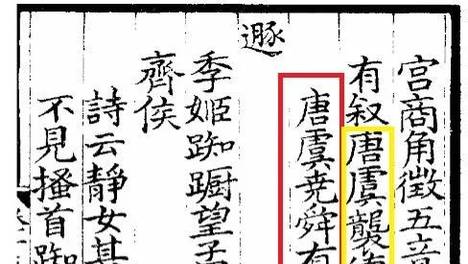 宮商角徵五音
有叙唐虞襲
唐虞尭舜有
遯
季姬踟蹰望
齊侯
詩云靜女其
不見搔首踟